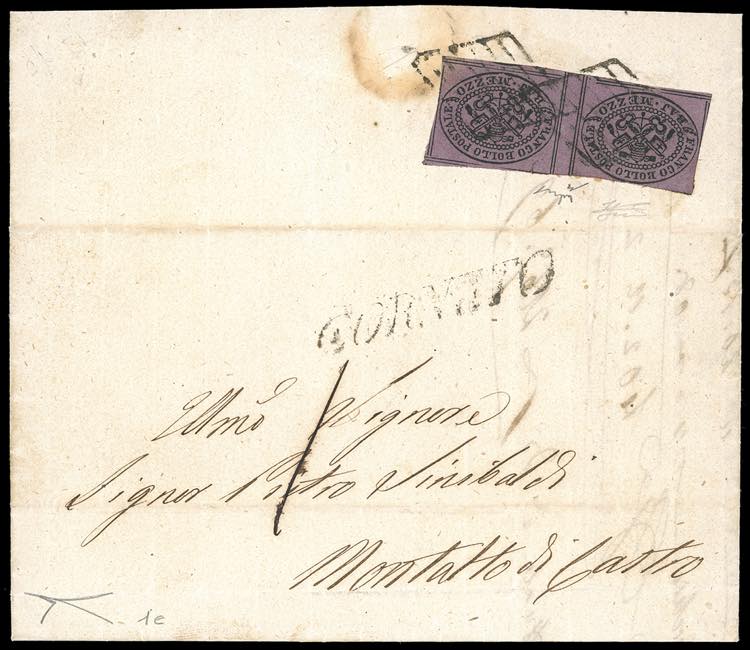 FRANCO BOLLO POSTALE BAJ. MEZZO
FRANCO BOLLO POSTALE BAJ. MEZZO
CORNETO
1
Illmo Signore
Signor Pietro Sinibaldi
Montalto di Castro
1e